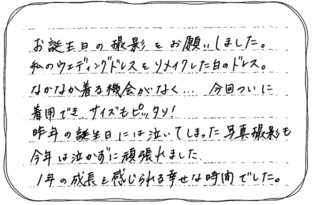 お誕生日の撮影をお願いしました。
私のウエディングドレスをリメイクした白のドレス。
なかなか着る機会がなく… 今回ついに
着用でき、サイズもピッタリ!
昨年の誕生日には泣いてしまった写真撮影も
今年は泣かずに頑張れました
1年の成長を感じられる幸せな時間でした。